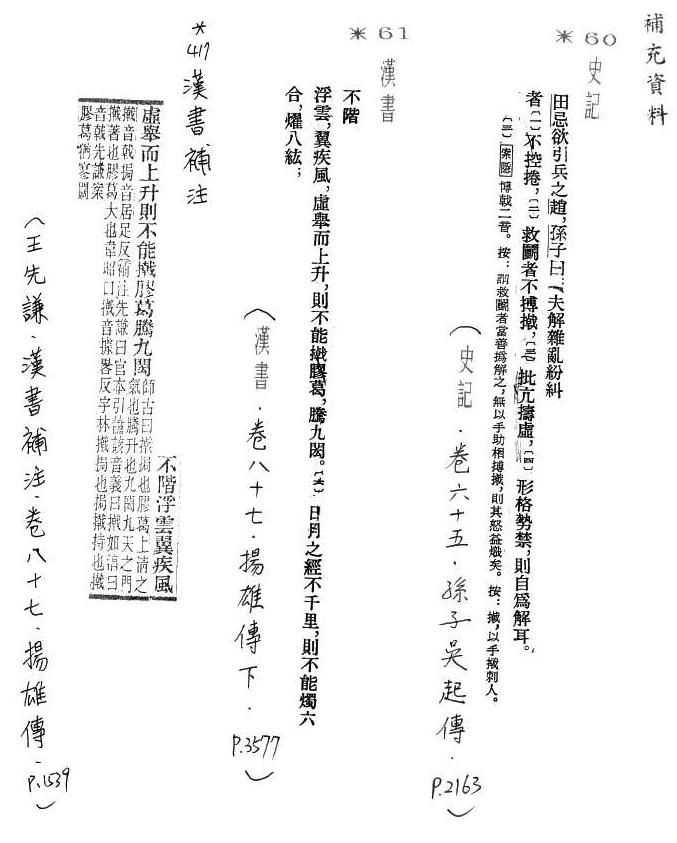 補充資料
* 60
史記
田忌欲引兵之趙,孫子曰:「夫解雜亂紛糾
者〔一〕不控捲,〔二〕救鬭者不搏撠,〔三〕批亢擣虛,〔四〕形格勢禁,則自為解耳。
〔三〕索隱 博戟二音。按:謂救鬭者當善撝解之,無以手助相搏撠,則其怒益熾矣。按:撠,以手撠刺人。
(史記.卷六十五.孫子吳起傳.P.2163)
* 61
漢書
不階
浮雲,翼疾風,虛舉而上升,則不能撠膠葛,騰九閎。日月之經不千里,則不能燭六
合,燿八紘;
(漢書.卷八十七.揚雄傳下.P.3577)
*417 漢書補注
不階浮雲翼疾風
虛舉而上升則不能撠膠葛騰九閎 師古曰撠挶也膠葛上清之
氣也騰升也九閎九天之門
撠音戟挶音居足反補注先謙曰官本引蕭該音義曰撠如淳曰
撠著也膠葛大也韋昭曰撠音據畧反字林撠挶也挶撠持也撠
音戟先謙案
膠葛猶寥闊
(王先謙.漢書補注.卷八十七.揚雄傳.P.1539)